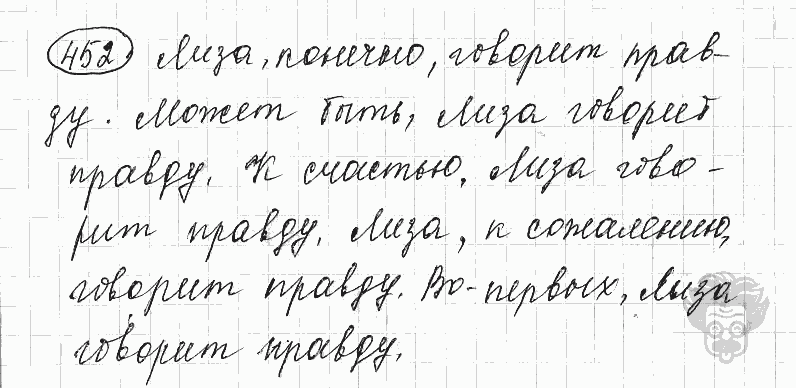 452. Лиза, конечно, говорит прав-
ду. Может быть, Лиза говорит
правду. К счастью, Лиза гово-
рит правду. Лиза, к сожалению,
говорит правду. Во-первых, Лиза
говорит правду.